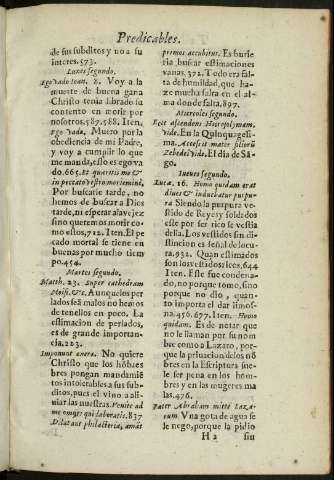 Predicables.
de sus subditos y no a su
interes. 573.
Lunes segundo.
Ego vado Ioan. 8. Voy a la
muerte de buena gana
Christo tenia librado su
contento en morir por
nosotros. 587. 588. Iten,
Ego vado. Muero por la
obediencia de mi Padre,
y voy a cumplir lo que
me manda, esso es ego va
do. 665. Et quæretis me &
in peccato vestro moriemini,
Por buscarle tarde, no
hemos de buscar a Dios
tarde, ni esperar a la vejez
sino queremos morir co-
mo estos, 712. Iten. El pe
cado mortal se tiene en
buenas por mucho tiem
po. 454.
Martes segundo.
Matth. 23. Super cathedram
Moisi. &c. Aunque los per
lados sea malos no hemos
de tenellos en poco. La
estimacion de perlados,
es de grande importan-
cia. 223.
Imponunt onera. No quiere
Christo que los hõbres
bres pongan mandamiẽ
tos intolerables a sus sub-
ditos, pues el vino a ali-
uiar las nuestras. Venite ad
me omnes qui laboratis. 837
Dilatant philacteria, amãt
primos accubitus. Es burle
ria buscar estimaciones
vanas. 372. Todo era fal-
ta de humildad, que ha-
ze mucha falta en el al-
ma donde falta. 897.
Miercoles segundo.
Ecce ascendimus Hierosolymam.
vide. En la Quinquagesi-
ma. Accessit mater filiorũ
Zebedei vide. El dia de Sã-
go.
Iueues segundo.
Lucæ. 16. Homo quidam erat
diues & induebatur purpu
ra Siendo la purpura ve-
stido de Reyes y soldados
este por ser rico se vestia
della. Los vestidos sin dis-
tincion es señal de locu-
ra. 932. Quan estimados
son los vestidos ricos, 644
Iten. Este fue condena-
do, no porque tomo, sino
porque no dio, quan-
to importa el dar limos-
na. 456. 677. Iten. Homo
quidam. Es de notar que
no le llaman por su nom
bre como a Lazaro, por-
que la priuacion de los nõ
bres en la Escriptura sue-
le ser pena en los hom-
bres y en las mugeres ma
las. 476.
Pater Abraham mitte Laza-
rum Vna gota de agua se
le nego, porque la pidio
H 2 sin